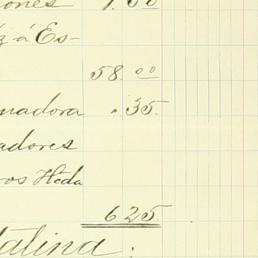 iones 1.50
z á Es-
58.00
nadora .35.
adores
ros Hda
625.
talina: